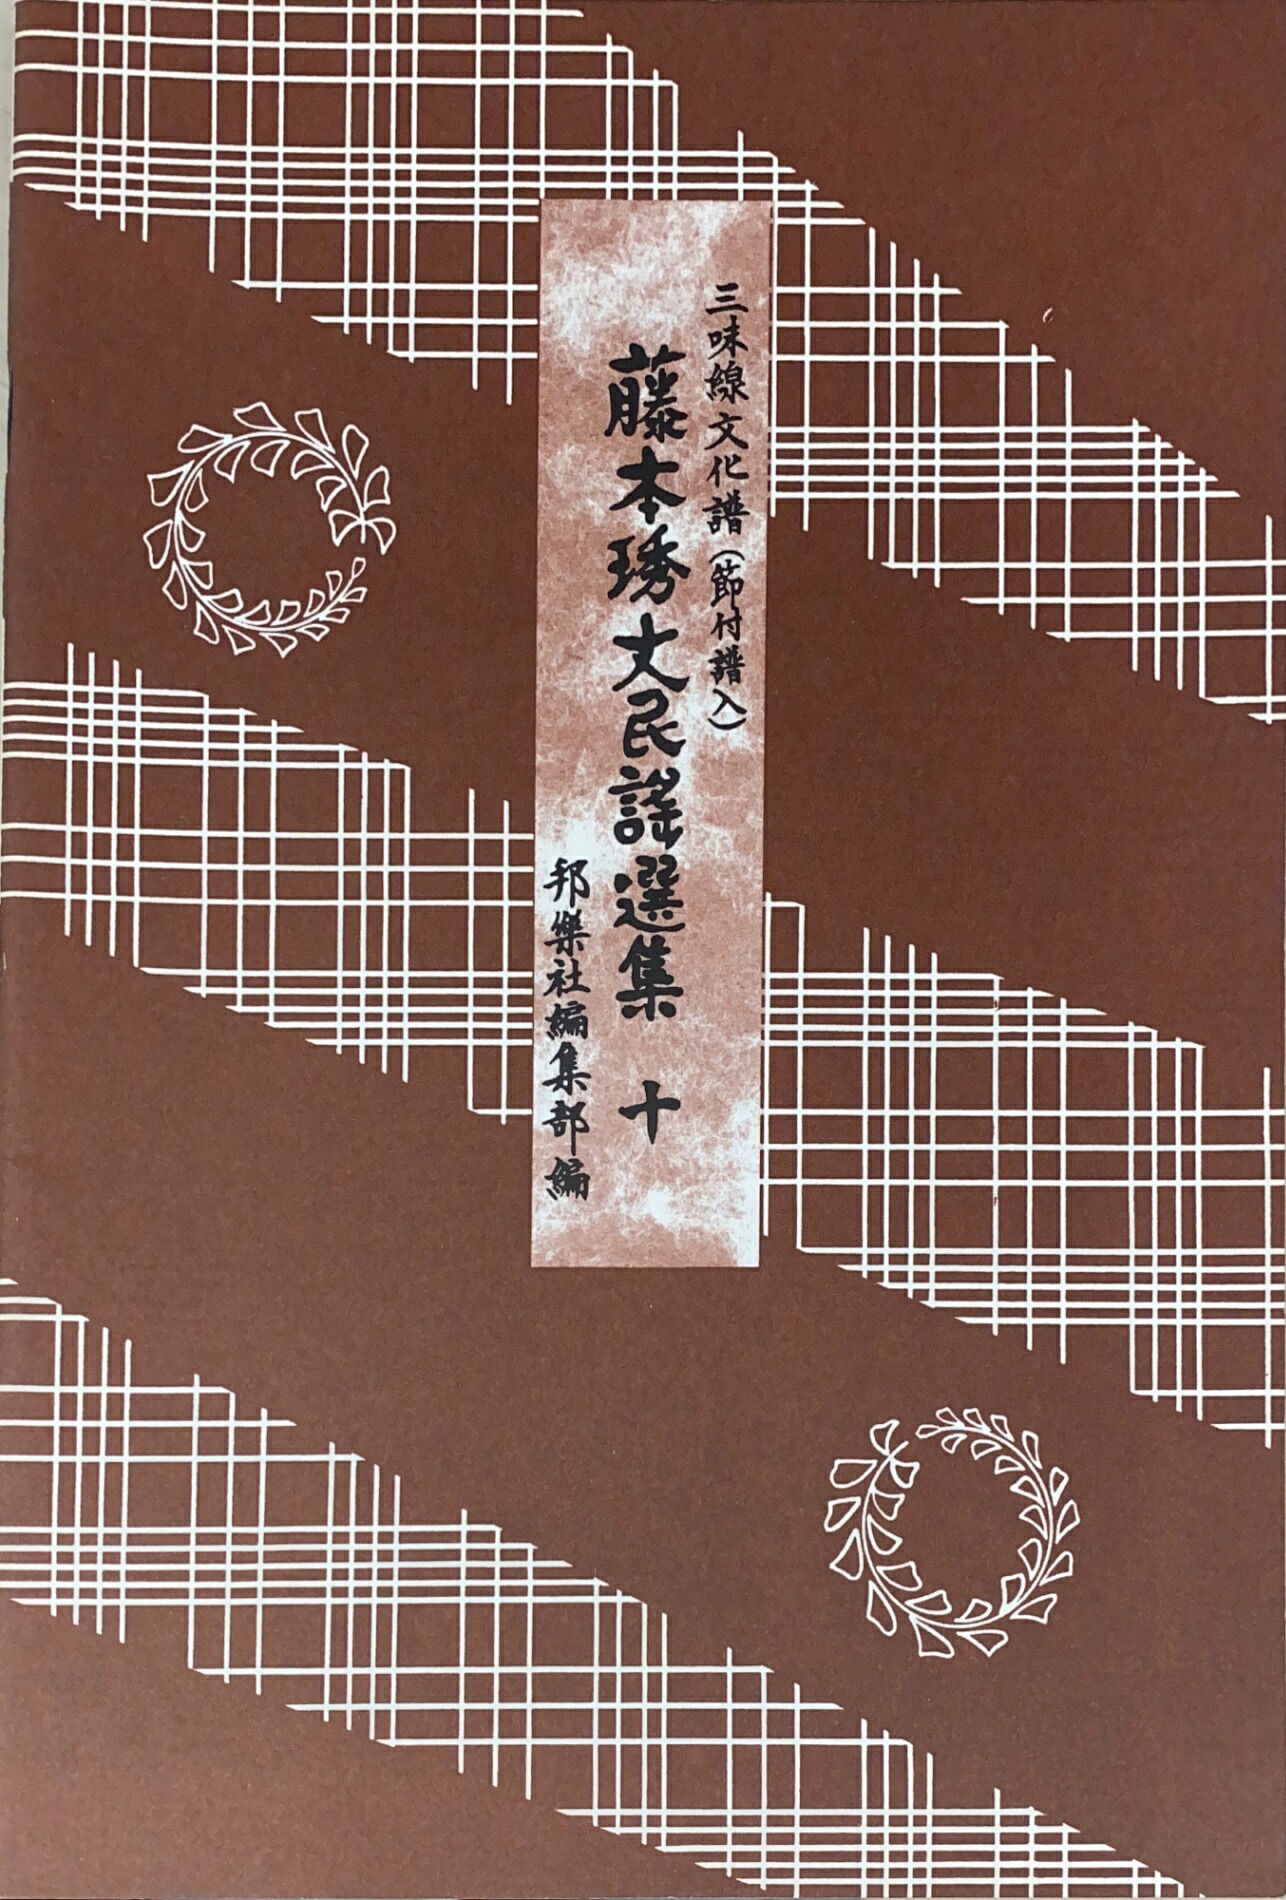 三味線文化譜(節付譜入)
藤本琇丈民謡選集 十
邦樂社編集部編